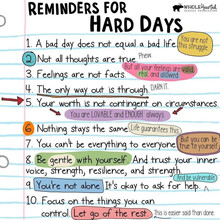 REMINDERS FOR
HARD DAYS
WHOLEhearted
1. A bad day does not equal a bad life.
You are not this struggle
2. Not all thoughts are true.
Phew
3. Feelings are not facts.
But all your feelings are valid, real, and allowed
4. The only way out is through.
DARN IT.
5. Your worth is not contingent on circumstances.
You are LOVABLE and ENOUGH always
6. Nothing stays the same.
Life guarantees this
7. You can't be everything to everyone.
But you can be true to yourself
8. Be gentle with yourself. And trust your inner
voice, strength, resilience, and strength.
And be vulnerable
9. You're not alone. It's okay to ask for help.
10. Focus on the things you can
control. Let go of the rest.
This is easier said than done